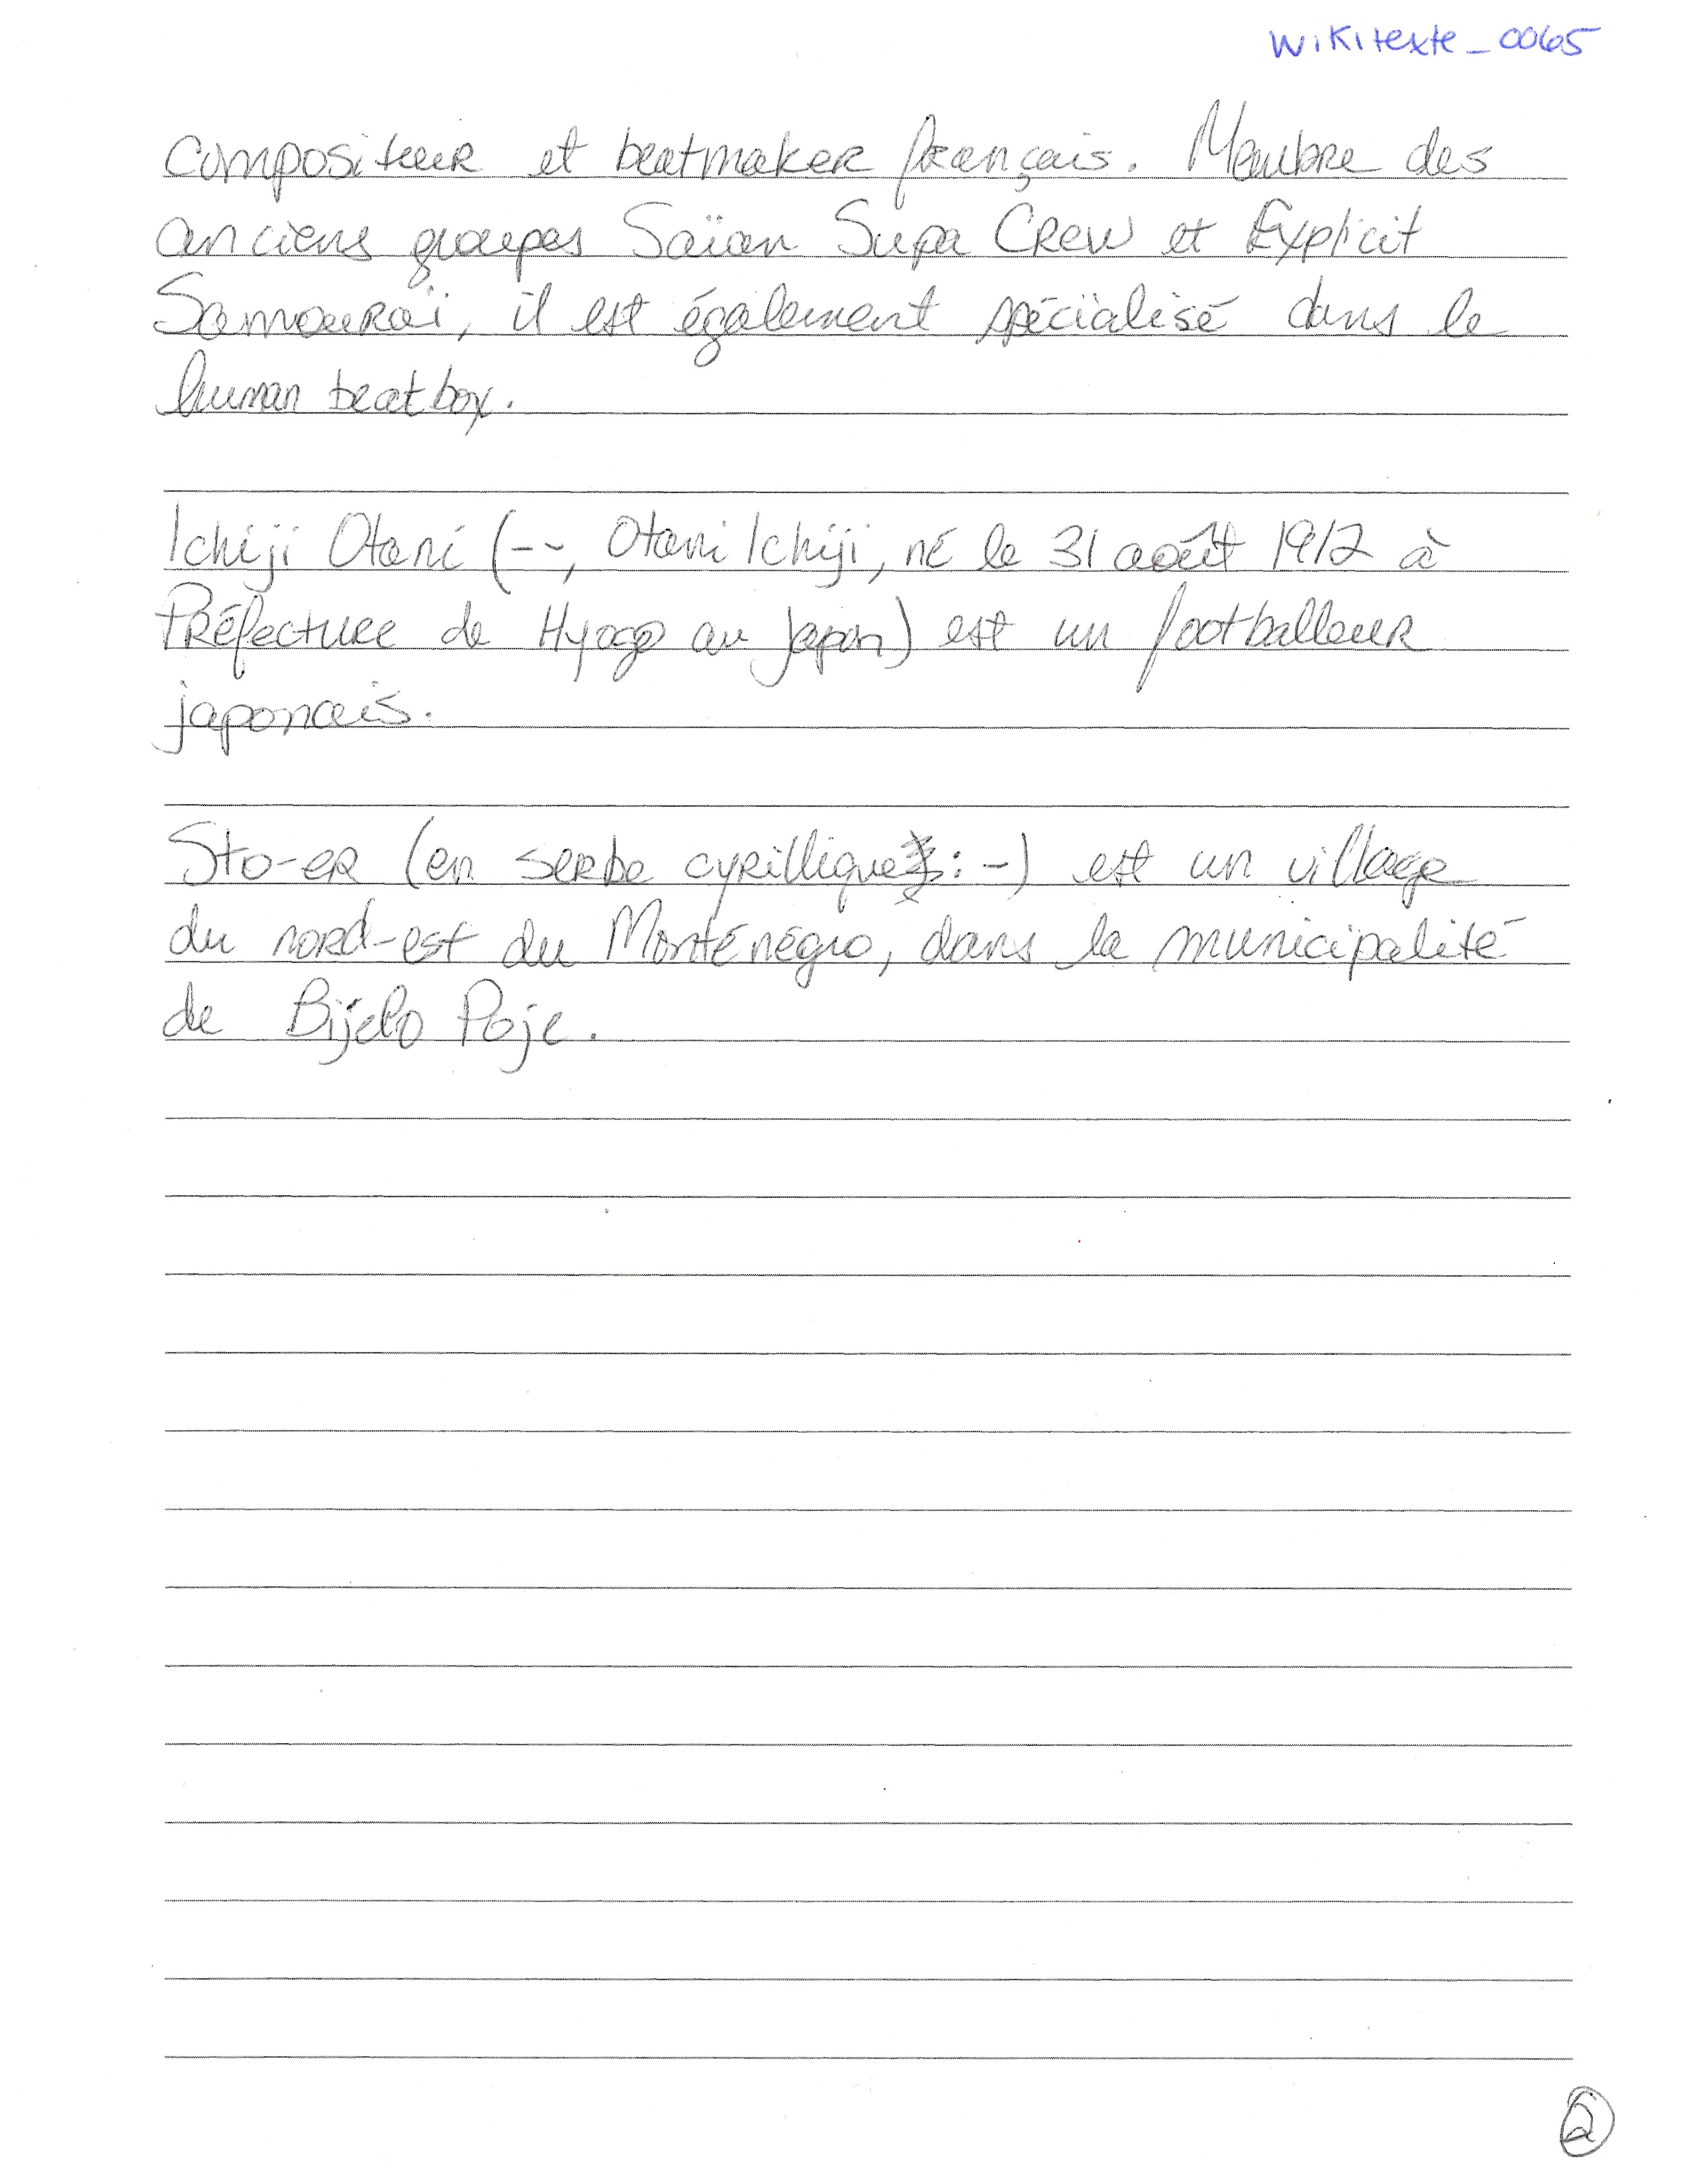 Wikitexte_0065
compositeur et beatmaker français. Membre des
anciens groupes Saïan Supa Crew et Explicit
Samouraï, il est également spécialisé dans le
human beatbox.
Ichiji Otani (--, Otani Ichiji, né le 31 août 1912 à
Préfecture de Hyogo au Japon) est un footballeur
japonais.
Sto-er (en serbe cyrillique : -) est un village
du nord-est du Monténégro, dans la municipalité
de Bijelo Poje.
2